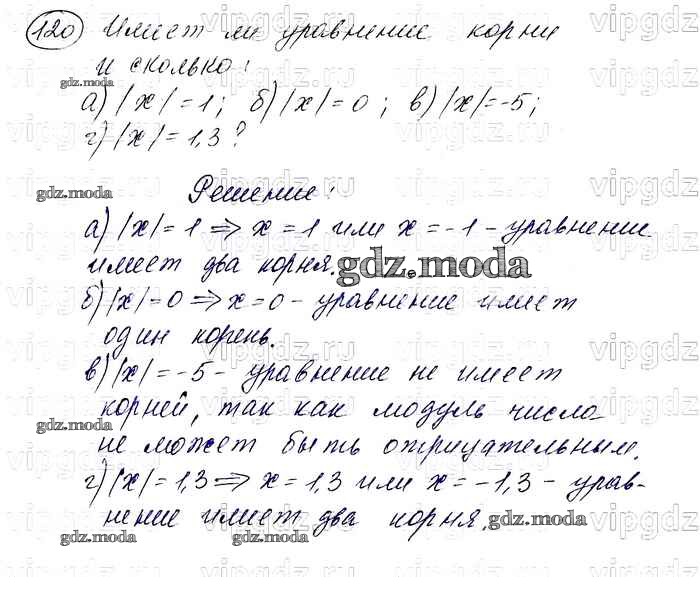 120 Имеет ли уравнение корни
и сколько:
gdz.moda
а) |x| = 1; б) |x| = 0; в) |x| = -5;
г) |x| = 1,3?
gdz.moda
Решение:
а) |x| = 1 ⇒ x = 1 или x = -1 - уравнение
имеет два корня.
gdz.moda
б) |x| = 0 ⇒ x = 0 - уравнение имеет
один корень.
в) |x| = -5 - уравнение не имеет
корней, так как модуль числа
gdz.moda
не может быть отрицательным.
г) |x| = 1,3 ⇒ x = 1,3 или x = -1,3 - урав-
нение имеет два корня.
gdz.moda
gdz.moda